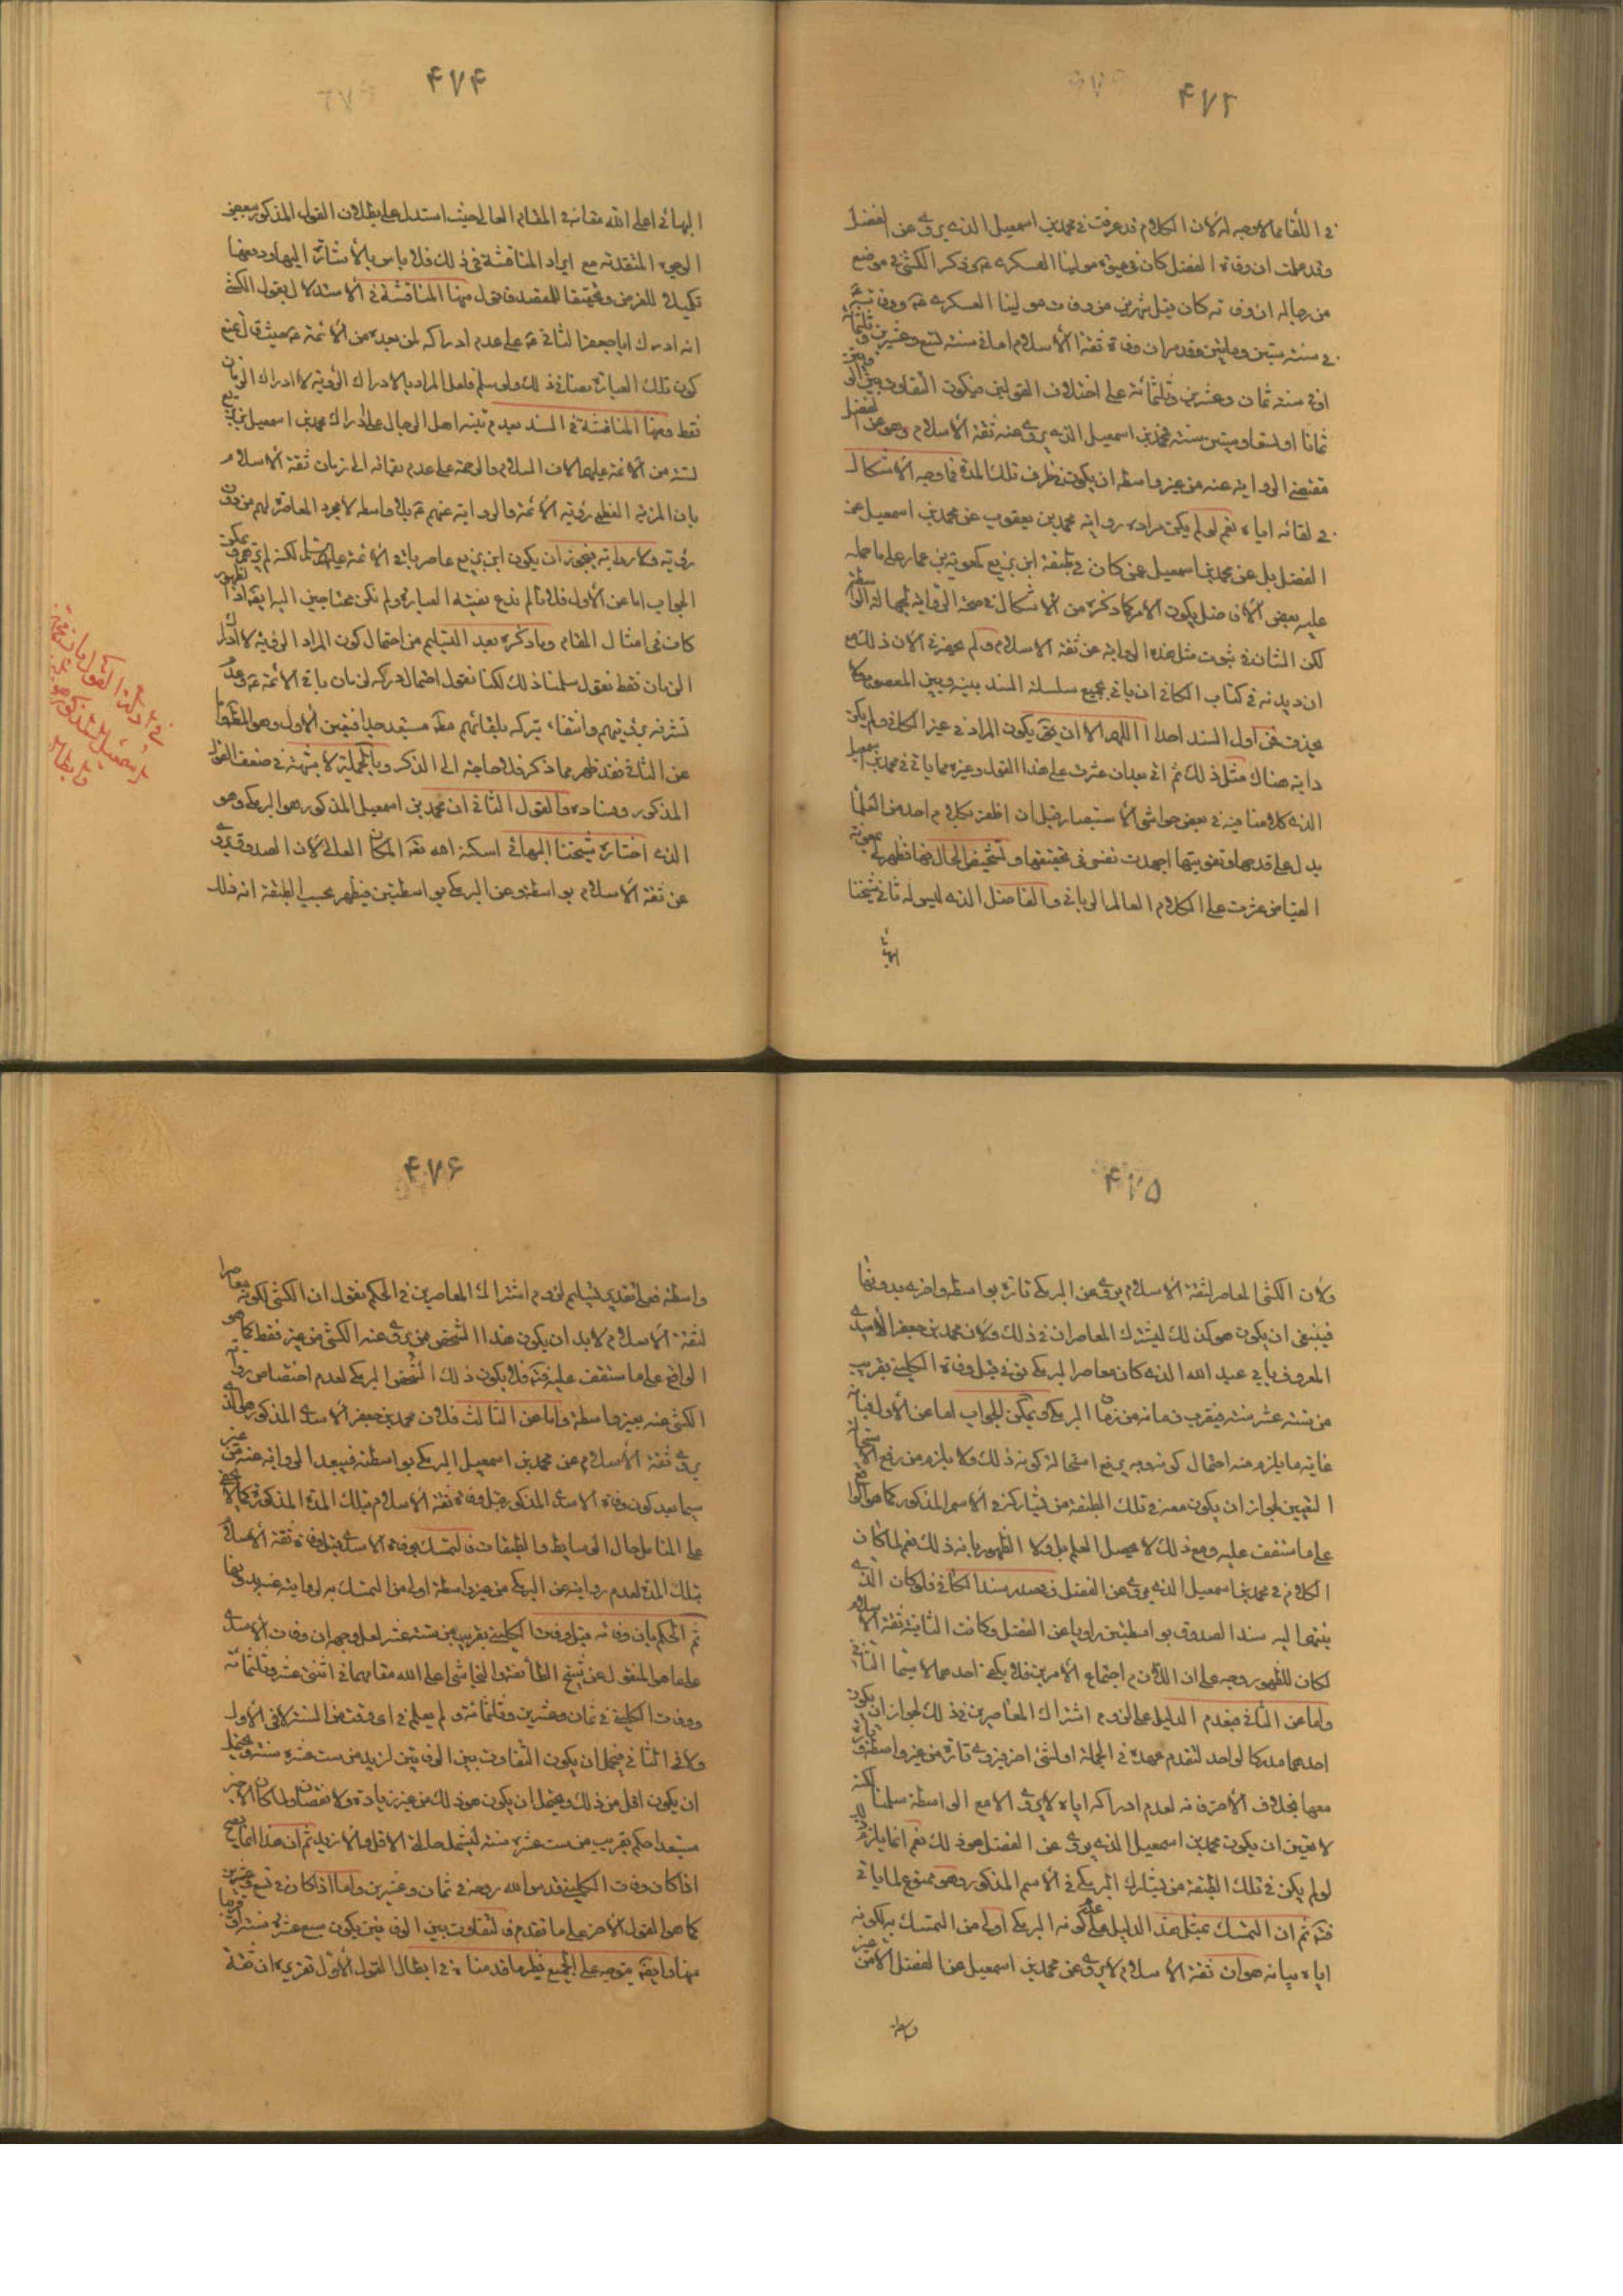 ۴۷۳
في اللقاء مما لا وجه له لان الكلام قد عرفت في محمد بن اسمعيل الذي يروى عن الفضل
وقد علمت ان وفاة الفضل كان في حيوة مولينا العسكري ع وذكر الكشي في موضع
من رجاله ان وفاته كان قبل شهرين من وفات مولينا العسكري ع ووفاته
في سنة ستين ومأتين وقد مر ان وفاة ثقة الاسلام اما في سنة تسع وعشرين وثلثمائة
او في سنة ثمان وعشرين وثلثمائة على اختلاف القولين فيكون التفاوت بين
ثمانا او تسعا وستين سنة فمحمد بن اسمعيل الذي يروى عنه ثقة الاسلام وهو عن الفضل
مقتضى الرواية عنه من غير واسطة ان يكون في ظرف تلك المدة فما وجه الاشكال
في لقائه اياه نعم لو لم يكن مراده رواية محمد بن يعقوب عن محمد بن اسمعيل عن
الفضل بل عن محمد بن اسمعيل عمن كان في طبقة ابن بزيع كمعوية بن عمار على ما حمله
عليه بعض الافاضل يكون الامر كما ذكره من الاشكال في صحة الرواية لجهالة الواسطة
لكن الشان في ثبوت مثل هذه الرواية عن ثقة الاسلام ولم يحضرني الان ذلك مع
ان ديدنه في كتاب الكافي ان ياتي بجميع سلسلة السند بينه وبين المعصوم ولا
يحذف من اول السند احدا اللهم الا ان يقال يكون المراد في غير الكافي ولم يكن
دابه هناك مثل ذلك ثم اني بعد ان عثرت على هذا القول وغيره مما ياتي في محمد بن اسمعيل
الذي كلامنا فيه في بعض حواشي الاستبصار قبل ان اظفر بكلام احد من العلماء
يدل على قدحها وتقويتها اجهدت نفسي في تحقيقها وتشخيص الحال فيها فظهر لي بمعونة
الفياض عثرت على الكلام العالم الرباني والفاضل الذي ليس له ثاني شيخنا
البهائي
۴۷۴
البهائي اعلى الله مقامه في المقام العالي حيث استدل على بطلان القول المذكور ببعض
الوجوه المتقدمة مع ايراد المناقشة في ذلك فلا باس بالاشارة اليها ودفعها
تكميلا للغرض وتحقيقا للمقصد فنقول منها المناقشة في الاستدلال بقول الكشي
انه ادرك ابا جعفر الثاني ع على عدم ادراكه لمن بعده من الائمة ع حيث قال بمنع
كون تلك العبارة نصا في ذلك ولو سلم فلعل المراد بالادراك الرؤية لا ادراك الزمان
فقط ومنها المناقشة في السند بعدم تنبه اهل الرجال على ادراك محمد بن اسمعيل بن بزيع
لستة من الائمة عليهم الاف السلام والرحمة على عدم بقائه الى زمان ثقة الاسلام
بان المزية العظمى رؤية الائمة والرواية عنهم ع بلا واسطة لا مجرد المعاصرة لهم من دون
رؤية ولا رواية فيجوز ان يكون ابن بزيع عاصر باقي الائمة عليهم السلام لكنه لم يرهم ويمكن
الجواب اما عن الاول فلانا لم ندع نصية العبارة ولم نكن محتاجين اليها
كان في امثال المقام وما ذكره بعد التسليم من احتمال كون المراد الرؤية لا ادراك
الزمان فقط نقول سلمنا ذلك لكنا نقول احتمال دركه لزمان باقي الائمة ع وعدم
تشرفه برؤيتهم وانتفاء تبركه بلقائهم ع مستبعد جدا فتعين الاول وهو المط واما
عن الثاني فقد ظهر مما ذكر فلا حاجة الى الذكر وبالجملة لا شبهة في ضعف القول
المذكور وفساده والقول الثاني ان محمد بن اسمعيل المذكور هو البرمكي وهو
الذي اختاره شيخنا البهائي اسكنه الله تعه المكان العلي لان الصدوق يروى
عن ثقة الاسلام بواسطة وعن البرمكي بواسطتين فيظهر بحسب الطبقة انه ذلك
في ذكر القول بان محمد
بن اسمعيل المذكور هو البرمكي
وابطاله
۴۷۵
ولان الكشي المعاصر لثقة الاسلام يروى عن البرمكي تارة بواسطة واخرى بدونها
فينبغي ان يكون هو كذلك ليشترك المعاصران في ذلك ولان محمد بن جعفر الاسدي
المعروف بابي عبد الله الذي كان معاصرا للبرمكي توفي قبل وفاة الكليني بقريب
من ستة عشر سنة فيقرب زمانه من زمان البرمكي ويمكن الجواب اما عن الاول فبان
غاية ما يلزم منه احتمال كونه هو برفع استحالة كونه ذلك ولا يلزم من رفع الاستحالة
التعيين لجواز ان يكون معه في تلك الطبقة من يشاركه في الاسم المذكور كما هو الواقع
على ما ستقف عليه ومع ذلك لا يحصل العلم بل ولا الظهور بانه ذلك نعم لما كان
الكلام في محمد بن اسمعيل الذي يروى عن الفضل في صدر سند الكافي فلو كان الذي
ينتهى اليه سند الصدوق بواسطتين راويا عن الفضل وكانت الثانية ثقة الاسلام
لكان للظهور وجه على ان اللازم اجتماع الامرين فلا يكفي احدهما لا سيما الثاني
واما عن الثاني فبعدم الدليل على لزوم اشتراك المعاصرين في ذلك لجواز ان يكون
احدهما مدركا لواحد لتقدم عهده في الجملة او لشئ اخر فيروى تارة من غير واسطة وتارة
معها بخلاف الاخر فانه لعدم ادراكه اياه لا يروى الا مع الواسطة سلمنا لكنه
لا يعين ان يكون محمد بن اسمعيل الذي يروى عن الفضل هو ذلك نعم انما يلزم ذلك
لو لم يكن في تلك الطبقة من يشارك البرمكي في الاسم المذكور وهو ممنوع لما ياتي
فتم ثم ان التمسك بمثل هذا الدليل على عدم كونه البرمكي اولى من التمسك به لكونه
اياه بيانه هو ان ثقة الاسلام لا يروى عن محمد بن اسمعيل عن الفضل الا من غير
واسطة
۴۷۶
واسطة فعلى تقدير تسليم لزوم اشتراك المعاصرين في الحكم نقول ان الكشي لكونه معاصرا
لثقة الاسلام لا بد ان يكون هذا الشخص ممن يروى عنه الكشي من غير فقط كما هو
الواقع على ما ستقف عليه فتم فلا يكون ذلك الشخص البرمكي لعدم اختصاص رواية
الكشي عنه بغير واسطة واما عن الثالث فلان محمد بن جعفر الاسدي المذكور هو الذي
يروى ثقة الاسلام عن محمد بن اسمعيل البرمكي بواسطته فيبعد الرواية عنه من غير
سيما بعد كون وفاة الاسدي المذكور قبل وفاة ثقة الاسلام بتلك المدة المذكورة كما لا يخفى
على المتامل حال الوسايط والطبقات فالتمسك بوفاة الاسدي قبل وفاة ثقة الاسلام
بتلك المدة لعدم روايته عن البرمكي من غير واسطة اولى من التمسك به لروايته عنه بدونها
ثم الحكم بان وفاته قبل وفات الكليني بقريب من ستة عشر لعل وجهه ان وفات الاسدي
على ما هو المنقول عن شيخ الطائفة والنجاشي اعلى الله مقامهما في اثنى عشر وثلثمائة
ووفات الكليني في ثمان وعشرين وثلثمائة ولم يعلم في اى وقت من السنة لا في الاول
ولا في الثاني فيحتمل ان يكون التفاوت بين الوفاتين ازيد من ست عشرة سنة ويحتمل
ان يكون اقل من ذلك ويحتمل ان يكون هو ذلك من غير زيادة ولا نقصان ولما كان الاخير
مستبعدا حكم بقريب من ست عشرة سنة ليشتمل حالة الاقل والازيد ثم ان هذا انما يصح
اذا كان وفات الكليني قدس الله روحه في ثمان وعشرين واما اذا كان في تسع وعشرين
كما هو القول الاخر على ما تقدم فالتفاوت بين الوفاتين يكون سبع عشرة سنة او قريبا
منها وايضا يتوجه على الجميع نظير ما قدمنا في ابطال القول الاول تقريره ان ثقة